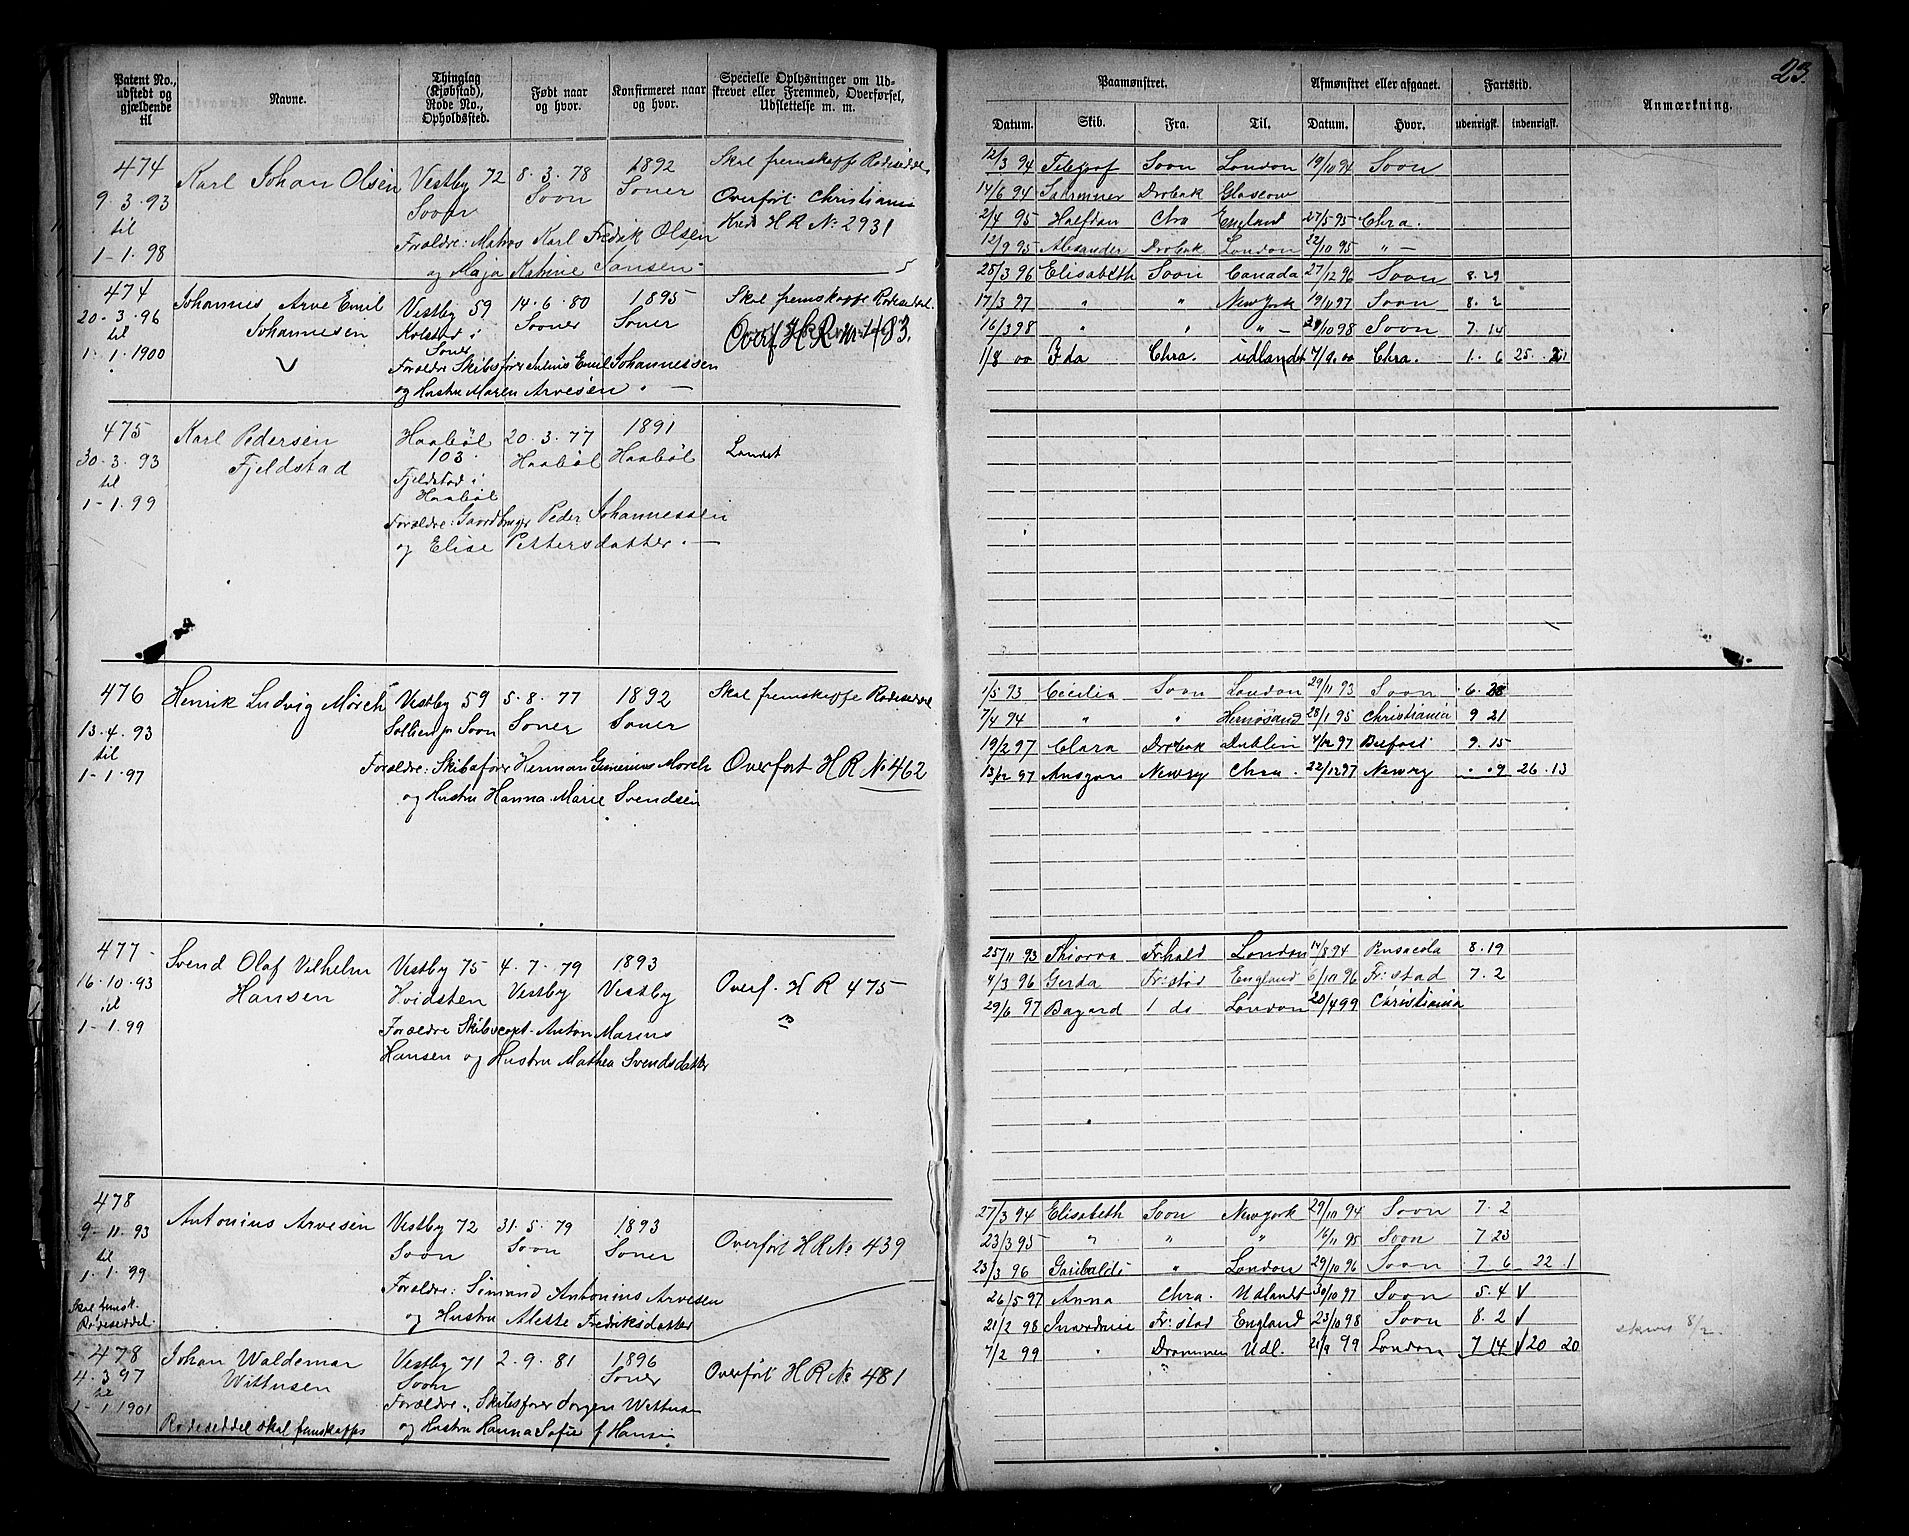 23.
Patent No., udstedt og gjældende til
Navne.
Thinglag (Kjøbstad), Rode No., Opholdssted.
Født naar og hvor.
Konfirmeret naar og hvor.
Specielle Oplysninger om Udskrevet eller Fremmed, Overførsel, Udslettelse m. m.
Paamønstret.
Afmønstret eller afgaaet.
Fartstid.
Anmærkning.
Datum. Skib. Fra. Til. Datum. Hvor. udenrigsk. indenrigsk.
474
9 3.93
til
1-1.98
Karl Johan Olsen
Vestby 72
8.3.78
Soon
1892
Soner
Skal fremskaffe Rodeseddel
Overført Christiania
Kreds H R No 2931
Forældre: Matros Karl Fredrik Olsen
og Maja Katrine Jansen
12/3 94 Telegraf Soon London 19/10 94 Soon
14/6 94 Drøbak Glascow
2/4 95 Halfdan Chra England 27/5 95 Chra.
12/9 95 Alexander Drøbak London 22/10 95 " -
474
20-3.96
til
1.1.1900
Johannes Arve Emil
Johannesen
Vestby 59
Kolstad i
Soner
14.6.80
Sooner
1895
Soner
Skal fremskaffe Rodeseddel
Overf H R No 483.
Forældre Skibsfører Julius Emil Johannessen
og Hustru Maren Arvesen . -
28/3 96 Elisabeth Soon Canada 27/12 96 Soon 8.29
17/3 97 " " New York 19/11 97 Soon 8.2
16/3 98 " " " - 29/10 98 Soon 7.14
1/8 00 Ida Chra. udlandet 7/9.00 Chra. 1. 6 25.
475
30.3.93
til
1-1.99
Karl Pedersen
Fjeldstad
Haabøl
103.
Fjeldstad i
Haabøl
20.3.77
Haabøl
1891
Haabøl
Landet
Forældre: Gaardbruger Peder Johannessen
og Elise Pettersdatter. -
476
13.4.93
til
1-1.97
Henrik Ludvig Mörch
Vestby 59
Sollien pr Soon
5.8.77
Soner
1892
Soner
Skal fremskaffe Rodeseddel
Overført H R No 462
Forældre: Skibsfører Herman Gunerius Mörch
og Hustru Hanna Marie Svendsen
1/5 93 Cecilia Soon London 29/11 93 Soon 6.28
7/4 94 " " Hernøsand 28/1 95 Christiania 9 21
19/2 97 Clara Drøbak Dublin 4/12 97 Belfast 9.15
13/12 97 Ansgar Newry Chra. 22/12 97 Newry . . 9 26 13
477
16.10.93
til
1-1.99
Svend Olaf Vilhelm
Hansen
Vestby 75
Hvidsten
4.7.79
Vestby
1893
Vestby
Overf. H R 475
Forældre Skibscapt. Anton Marius
Hansen og Hustru Mathea Svendsdatter
25/11 93 Thiorva Fr:hald London 14/8 94 Pensacola 8.19
4/3 96 Gerda Fr:stad England 6/10 96 Fr:stad 7.2
29/6 97 Bayard do London 20/4 99 Christiania
478
9-11.93
til
1.1.99
Skal fremsk.
Rodeseddel.
Antonius Arvesen
Vestby 72
Soon
31.5.79
Soon
1893
Soner
Overført H R No 439
Forældre: Simund Antonius Arvesen
og Hustru Alette Fredriksdatter
27/3 94 Elisabeth Soon New york 29/10 94 Soon 7.2
23/3 95 " " " 16/11 95 Soon 7 23
23/3 96 Garibaldi " London 29/10 96 Soon 7 6 22 1
478
4.3 97
til
1-1 1901
Johan Waldemar
Wittusen
Rodeseddel skal fremskaffes
Vestby 71
Soon
2.9.81
1896
Soner
Overført H R No 481
Forældre: Skibsfører Jørgen Wittusen
og Hustru Hanna Sofie f Hansen
26/5 97 Anna Chra. Udlandet 30/10 97 Soon 5.4
21/2 98 Fr:stad England 23/10 98 Soon 8.2
7/2 99 " Drammen Udl. 21/9 99 London 7 14 20 20